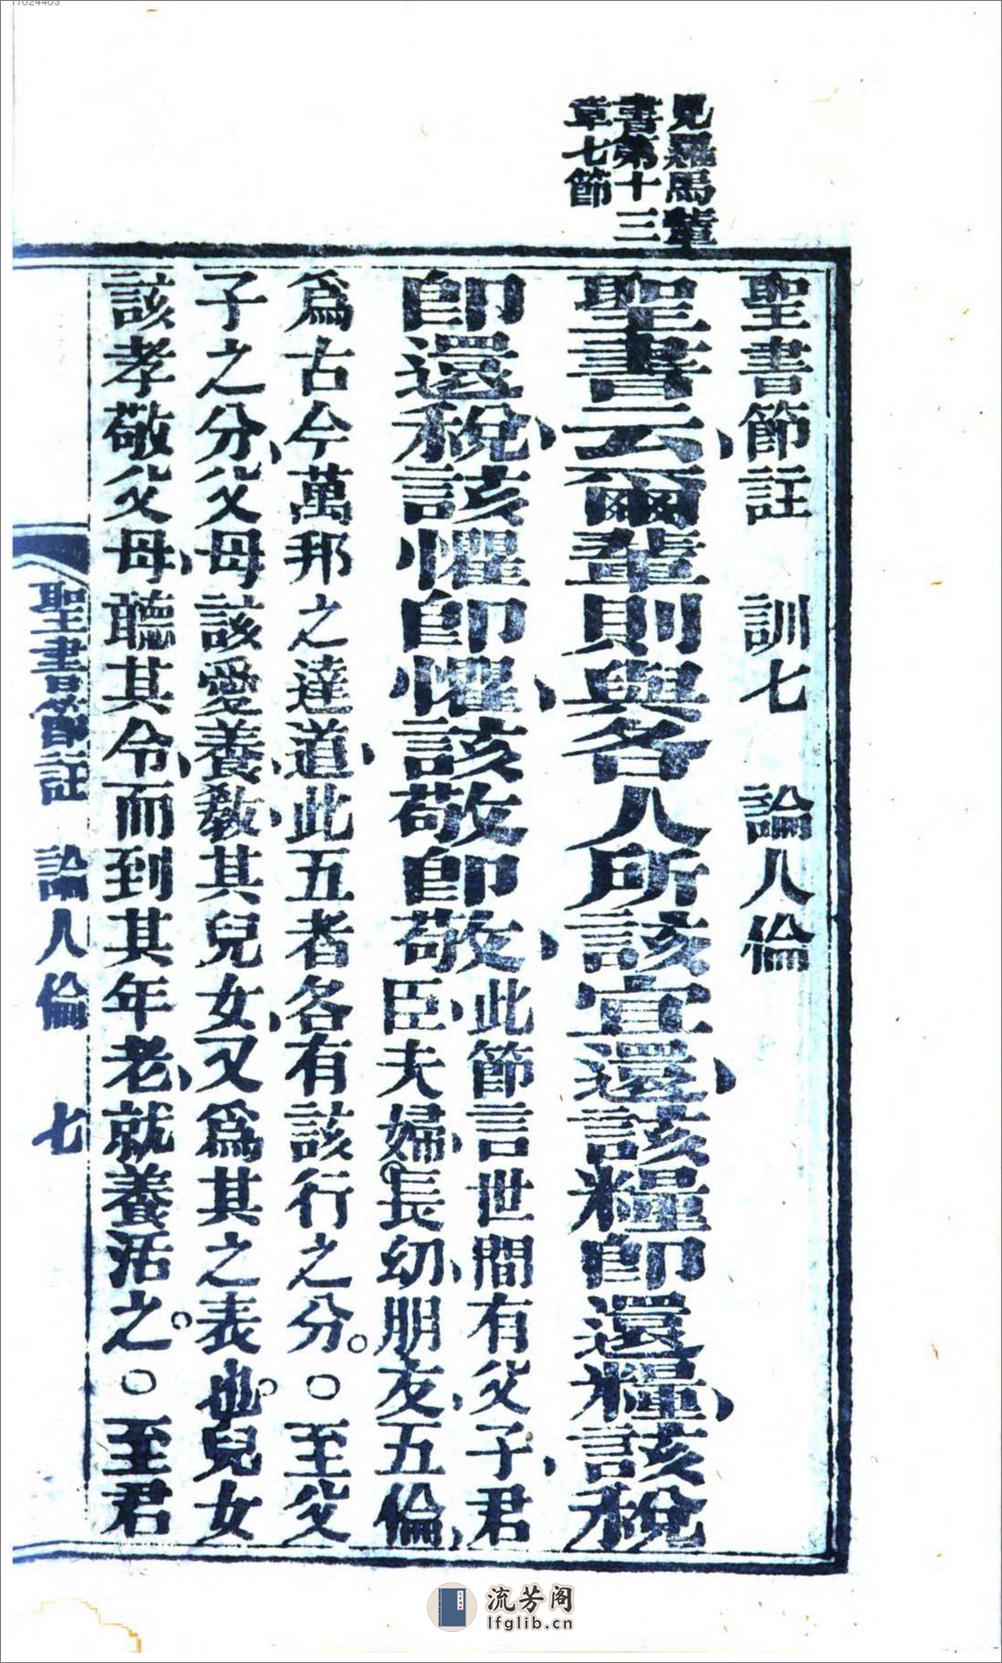 11024403
見羅馬輩
書第十三
章七節
聖書節註　訓七　論人倫
聖書云、爾輩則與各人所該宜還、該糧即還糧、該稅
即還稅、該懼即懼、該敬即敬、
此節言世間有父子、君
臣、夫婦、長幼、朋友、五倫、
爲古今萬邦之達道、此五者各有該行之分。○至父
子之分、父母該愛、養、教、其兒女、又爲其之表也。兒女
該孝敬父母、聽其令、而到其年老、就養活之。○至君
聖書節註　論人倫　七
流芳阁
lfglib.cn